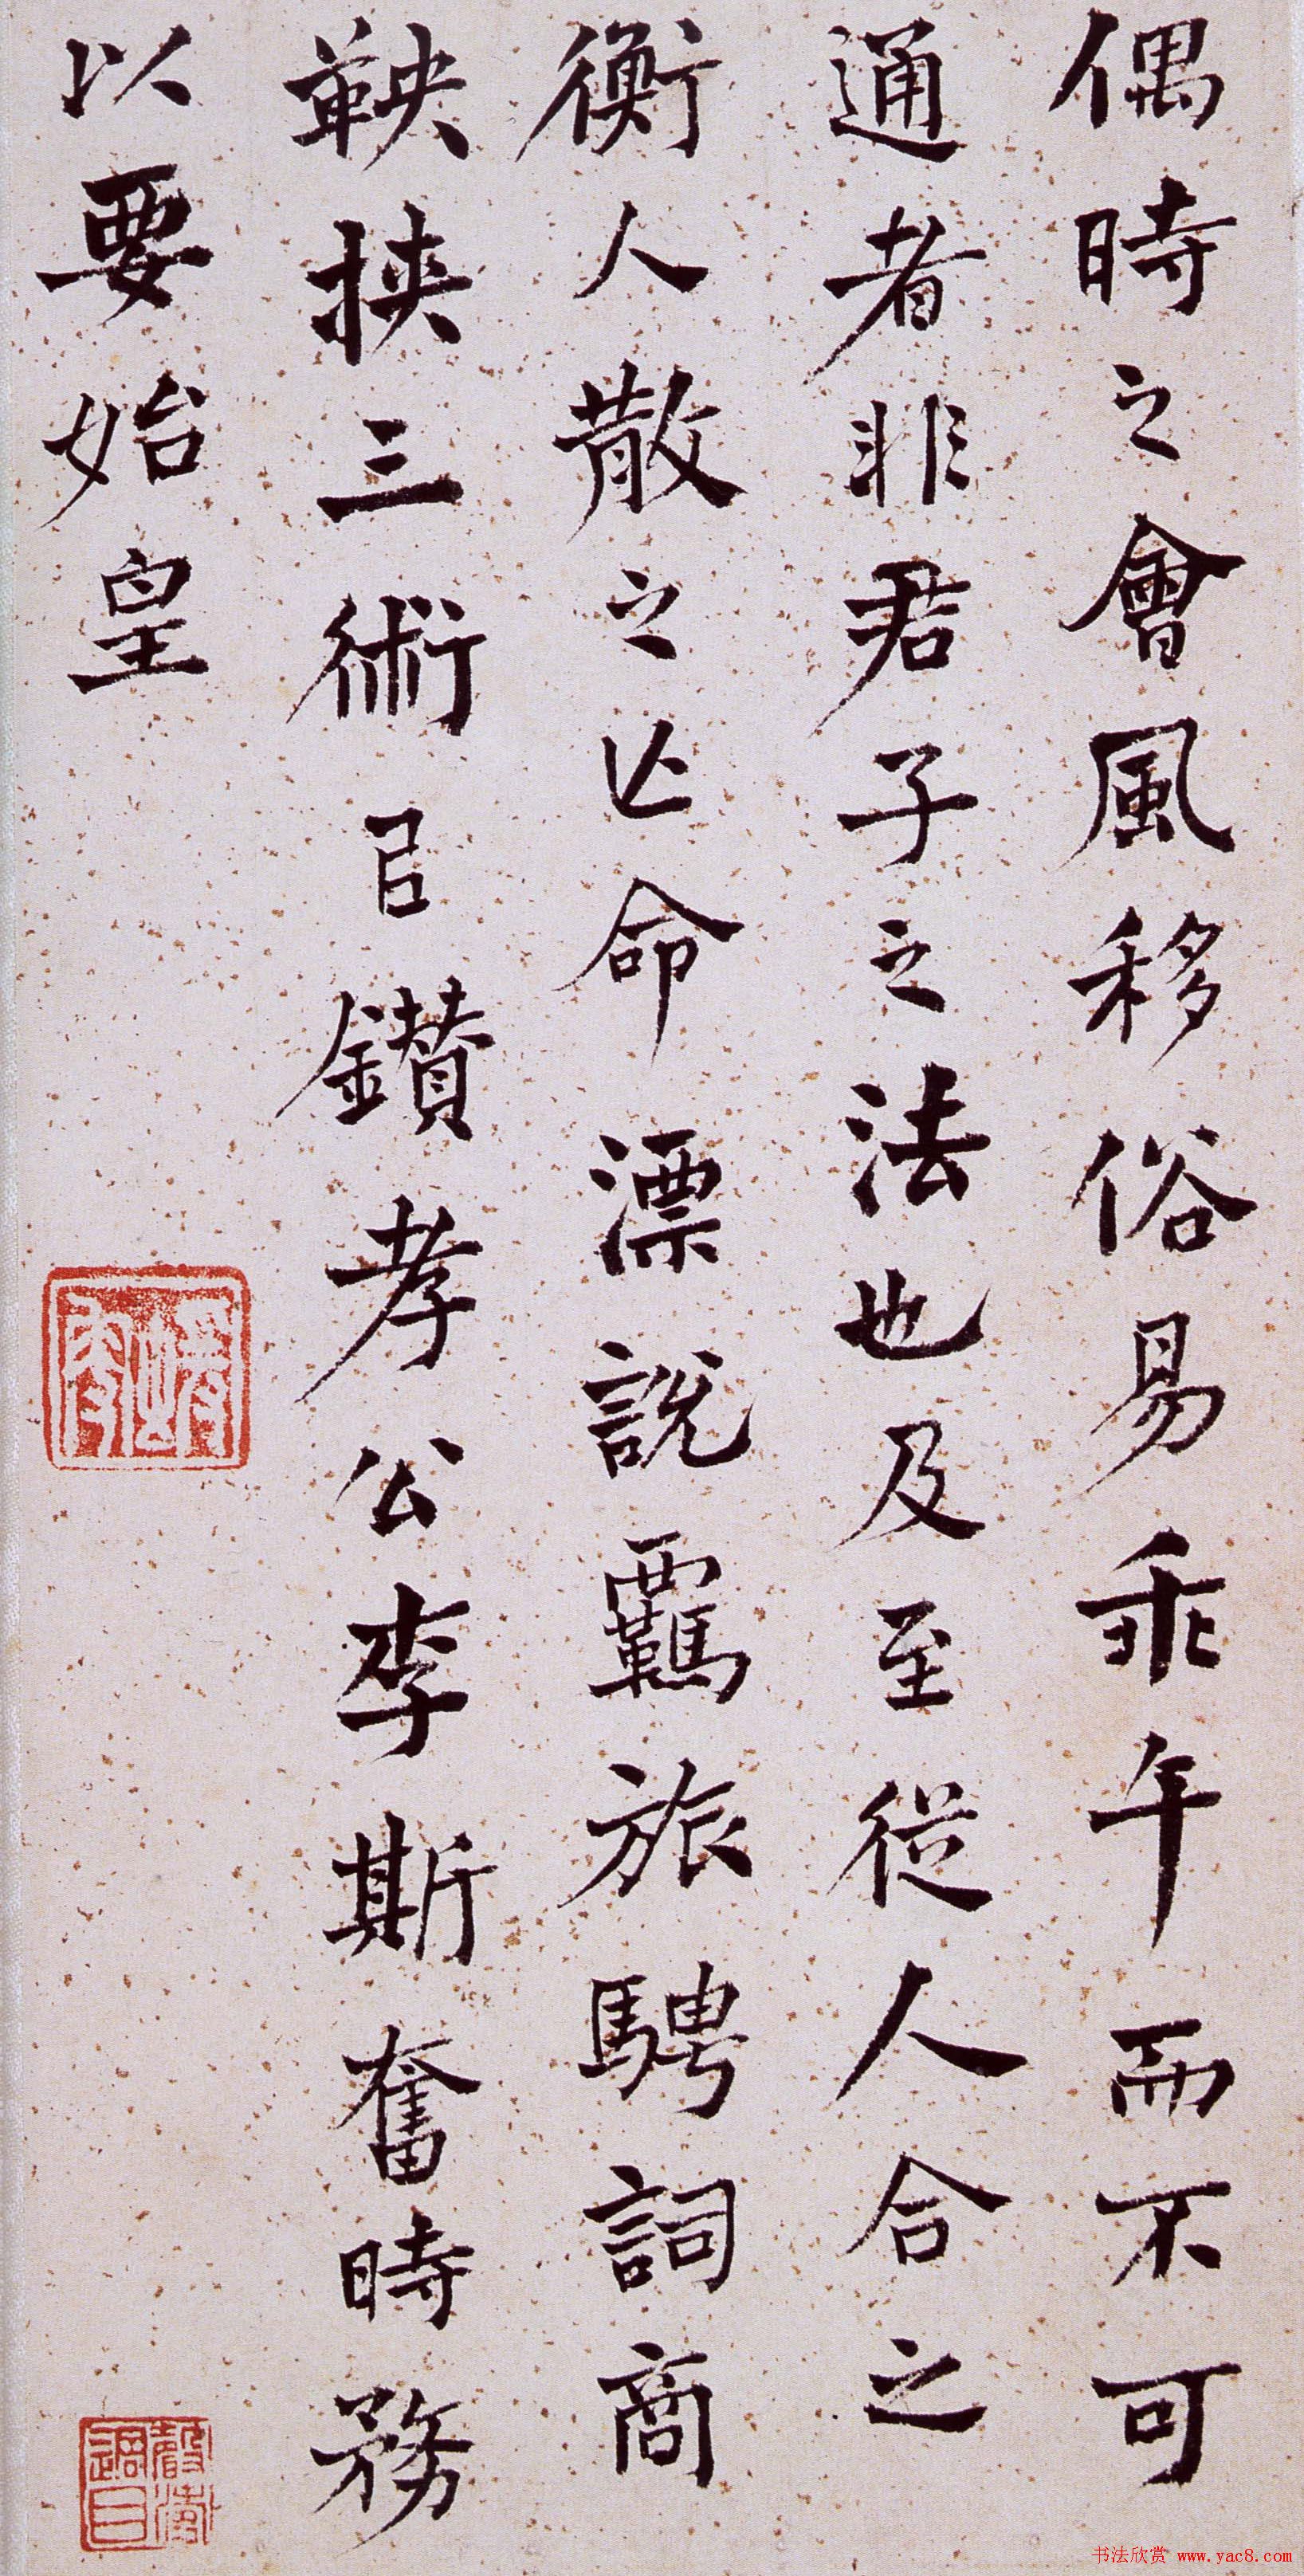 偶時之會風移俗易乖午而不可
通者非君子之法也及至從人合之
衡人散之亡命漂說羈旅騁詞商
鞅挾三術㠯鑚孝公李斯奮時務
以要始皇
书法欣赏 www.yac8.com